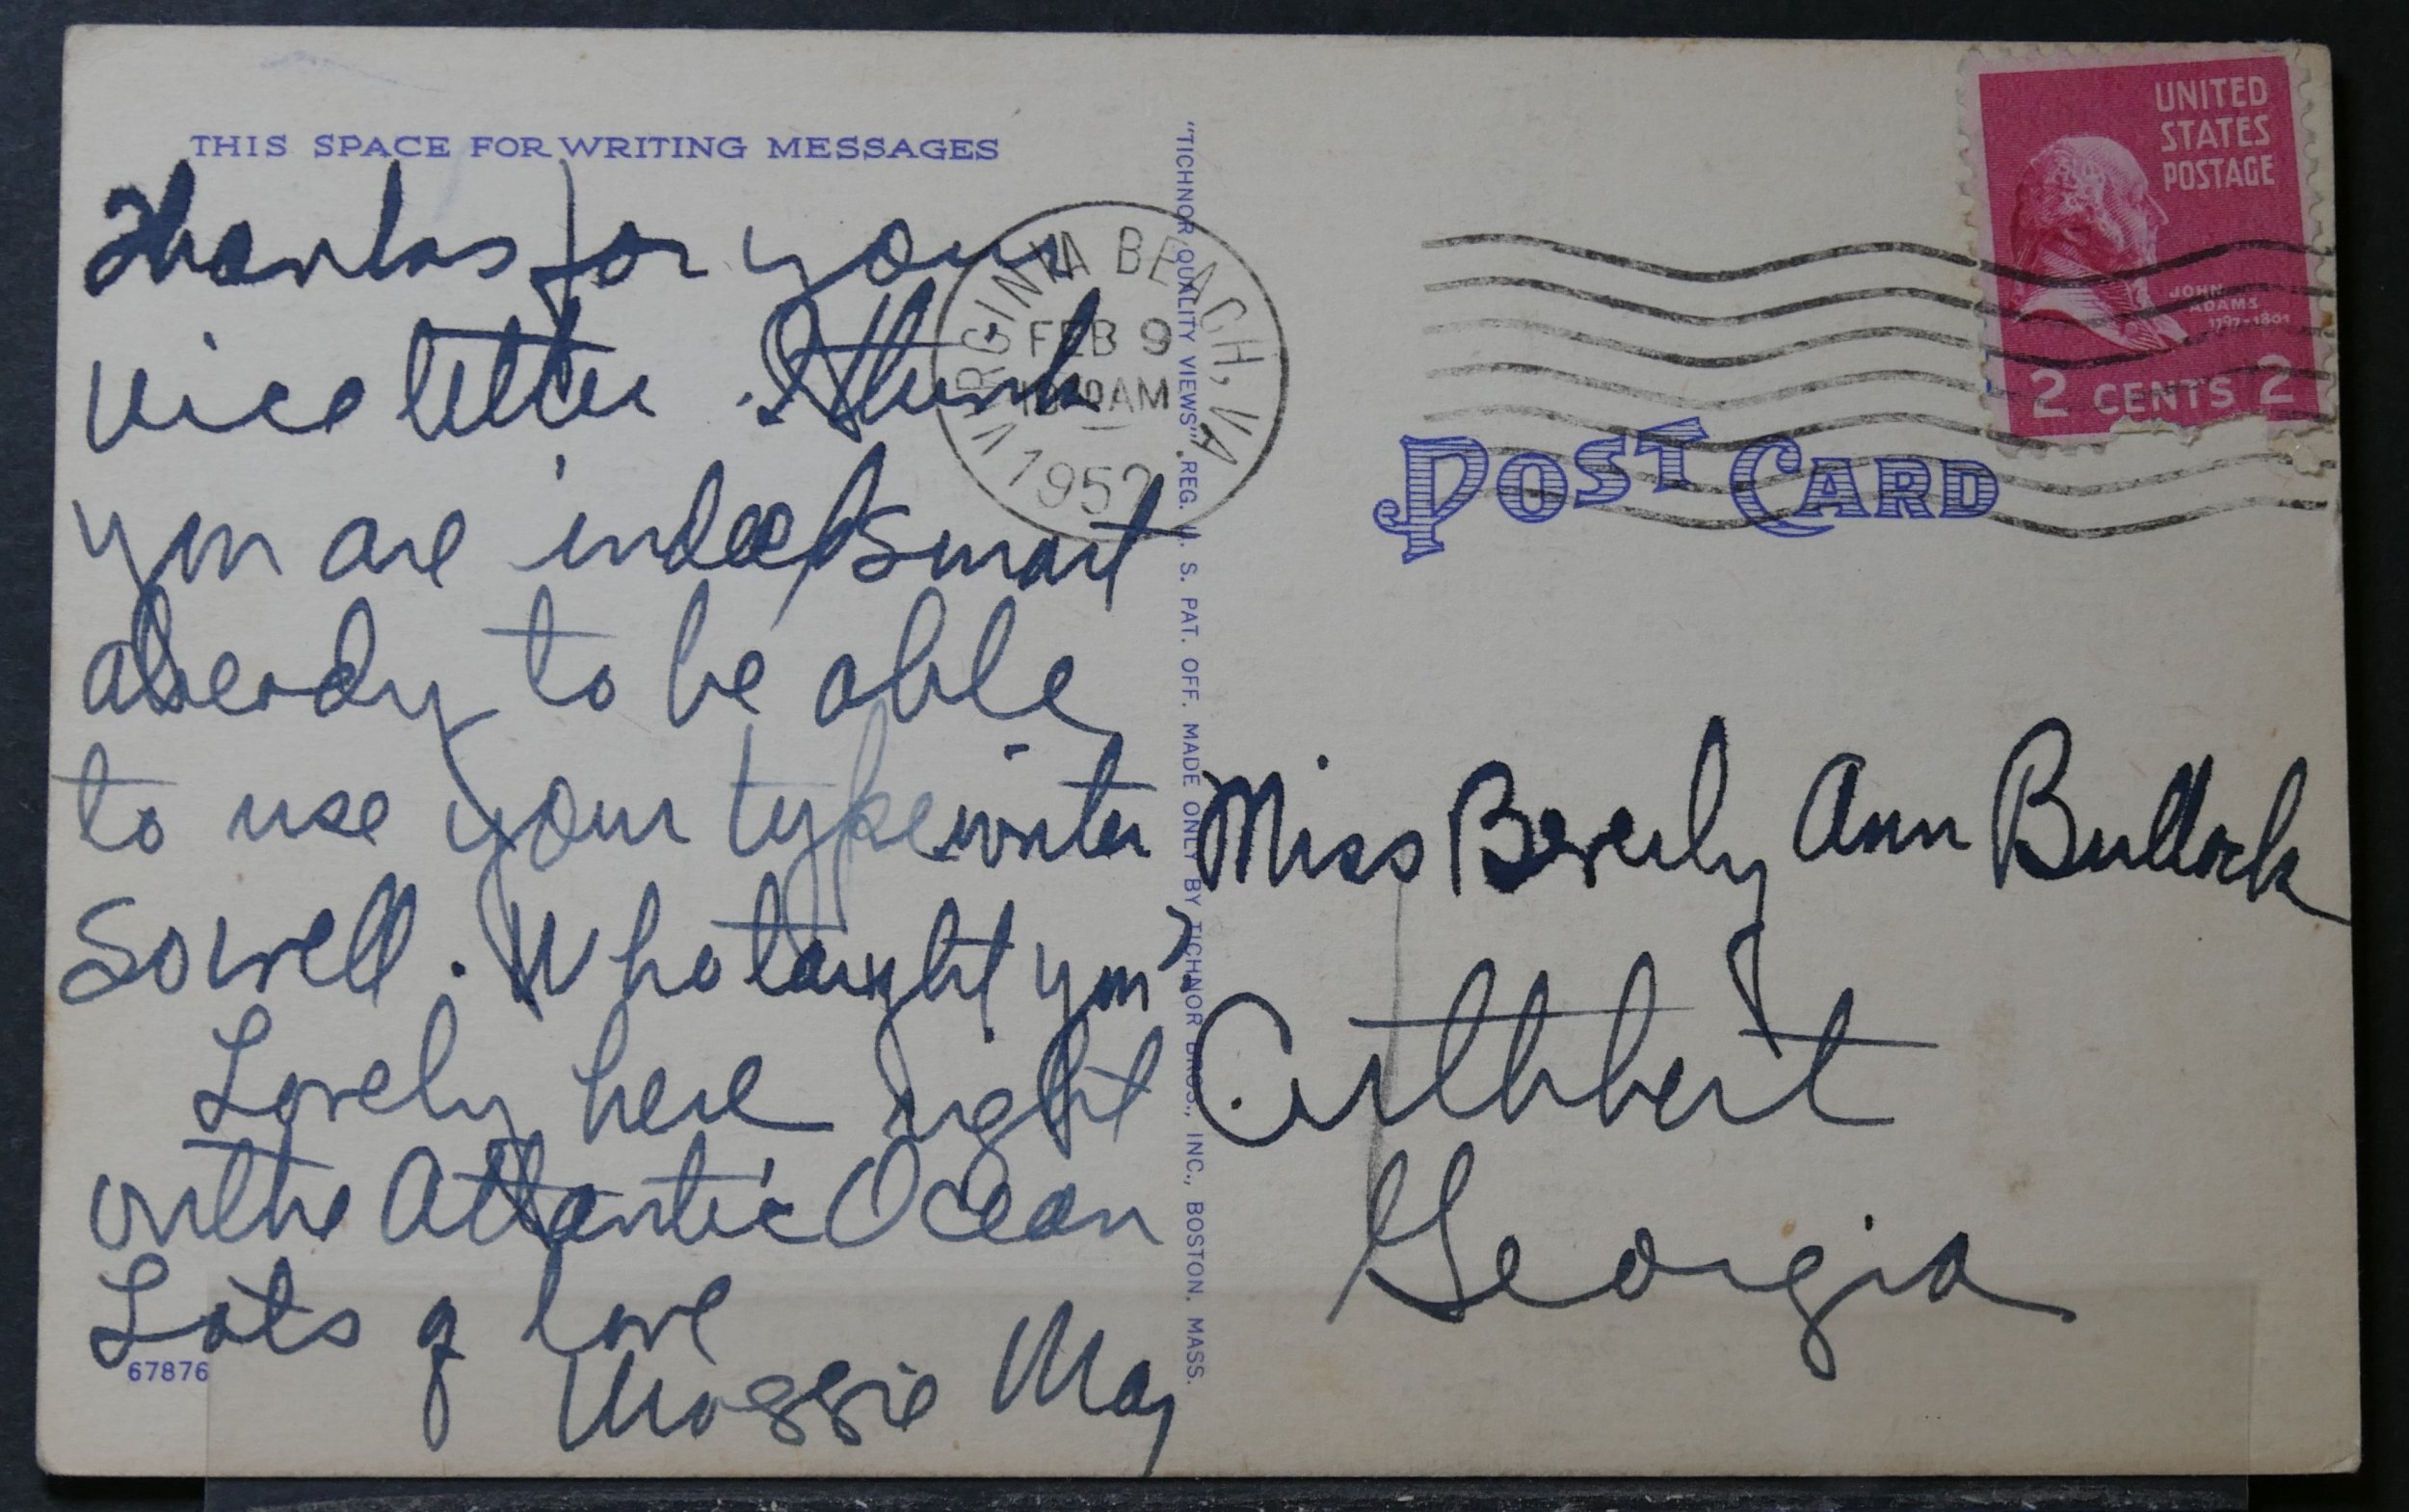 THIS SPACE FOR WRITING MESSAGES
Thanks for your
nice letter. I think
you are indeed smart
already to be able
to use your typewriter
so well. Who taught you?
Lovely here right
on the Atlantic Ocean
Lots of love
Maggie May
67876
"TICHNOR QUALITY VIEWS" REG. U. S. PAT. OFF. MADE ONLY BY TICHNOR BROS., INC., BOSTON, MASS.
VIRGINIA BEACH, VA
FEB 9
AM
1952
UNITED
STATES
POSTAGE
JOHN
ADAMS
1797-1801
2 CENTS 2
POST CARD
Miss Beverly Ann Bullock
Cuthbert
Georgia